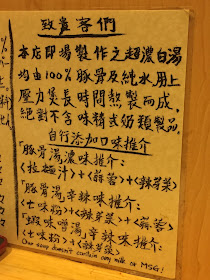 致貴客們
本店即場製作之超濃白湯
均由100%豚骨及純水用上
壓力煲長時間熬製而成,
絕對不含味精或奶類製品,
自行添加口味推介
「豚骨湯濃味推介:
<拉麵汁>+<蒜蓉>+<辣芽菜>
「豚骨湯辛辣味推介:
<七味粉>+<辣芽菜>+<蒜蓉>
「蝦味噌湯辛辣味推介:
<七味粉>+<辣芽菜>
Our soup doesn't contain any milk or MSG!